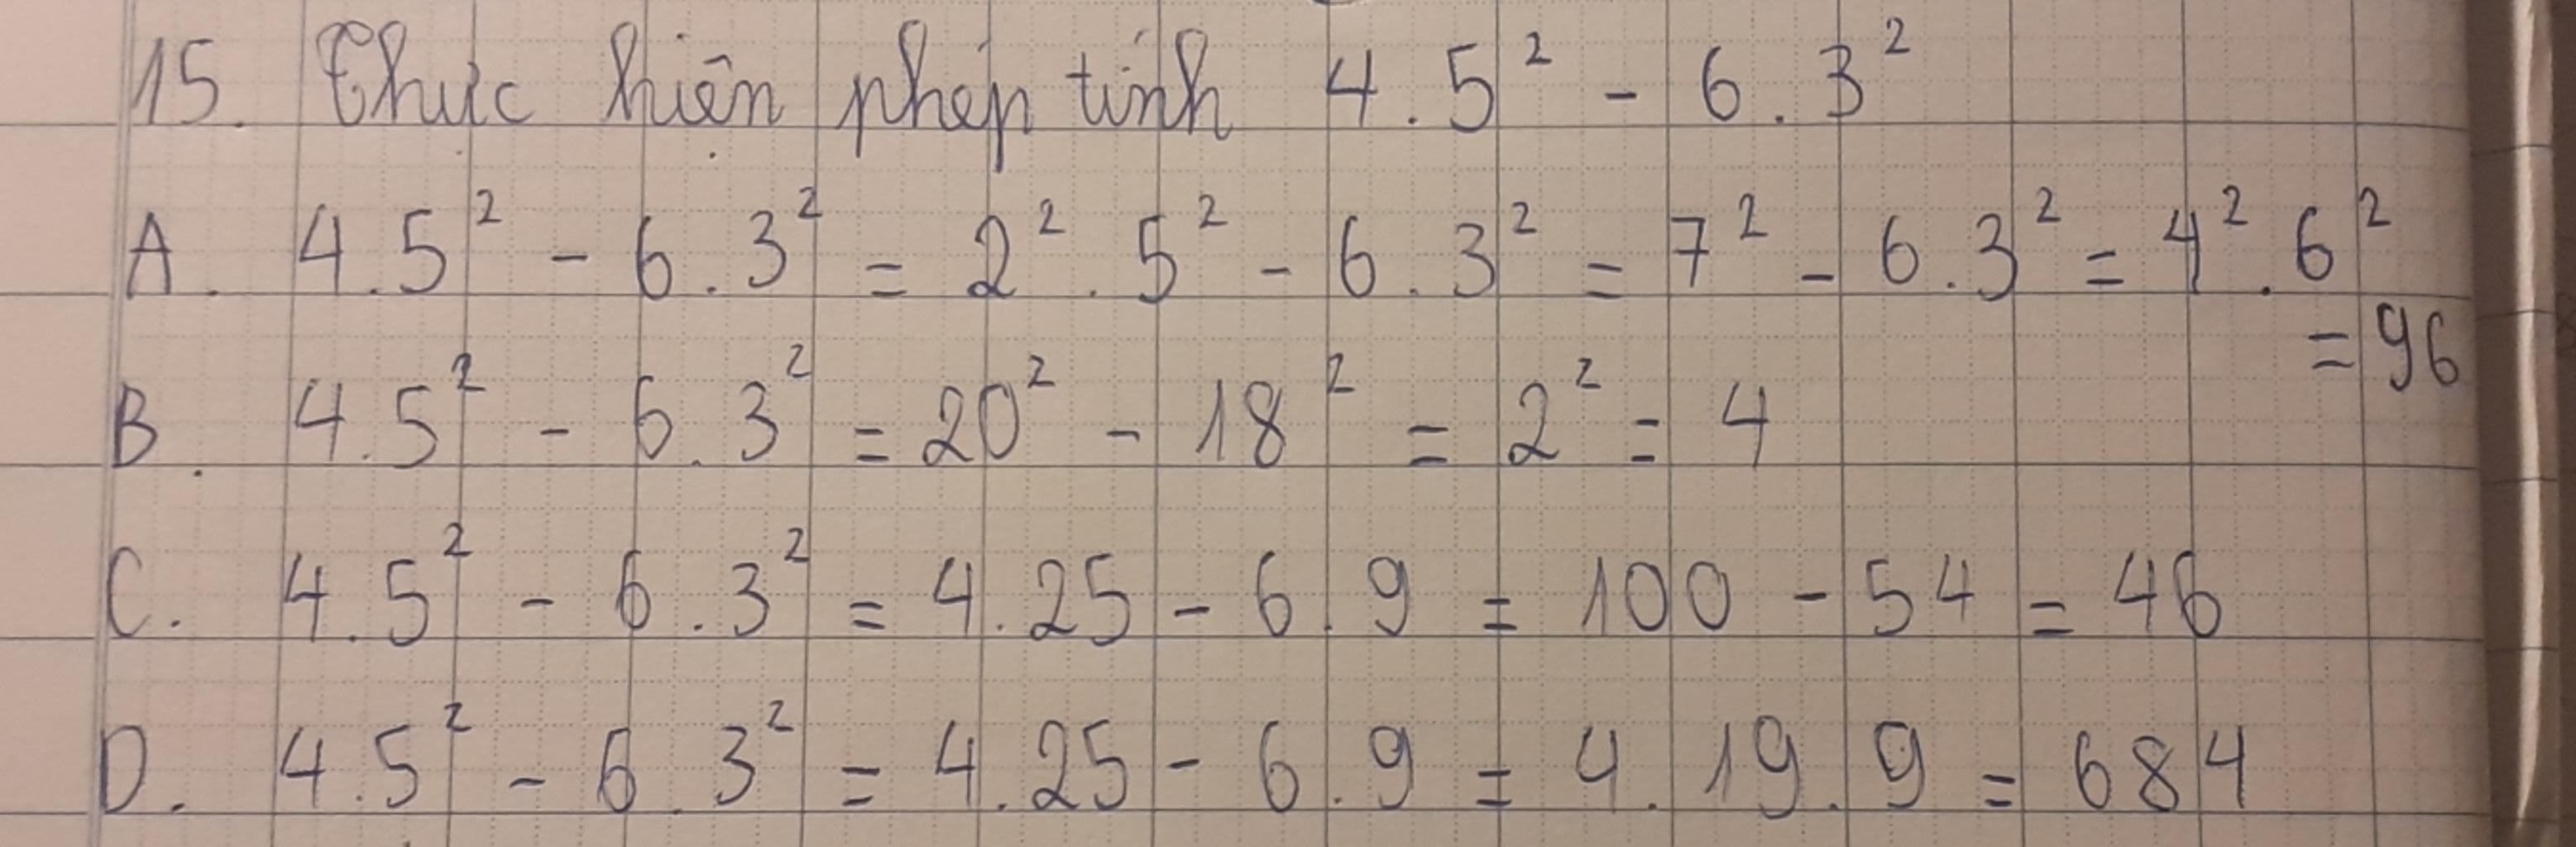 15. Thực hiện phép tính 4.5² - 6.3²
A. 4.5² - 6.3² = 2².5² - 6.3² = 7² - 6.3² = 4².6²
= 96
B. 4.5² - 6.3² = 20² - 18² = 2² = 4
C. 4.5² - 6.3² = 4.25 - 6.9 = 100 - 54 = 46
D. 4.5² - 6.3² = 4.25 - 6.9 = 4.19.9 = 684